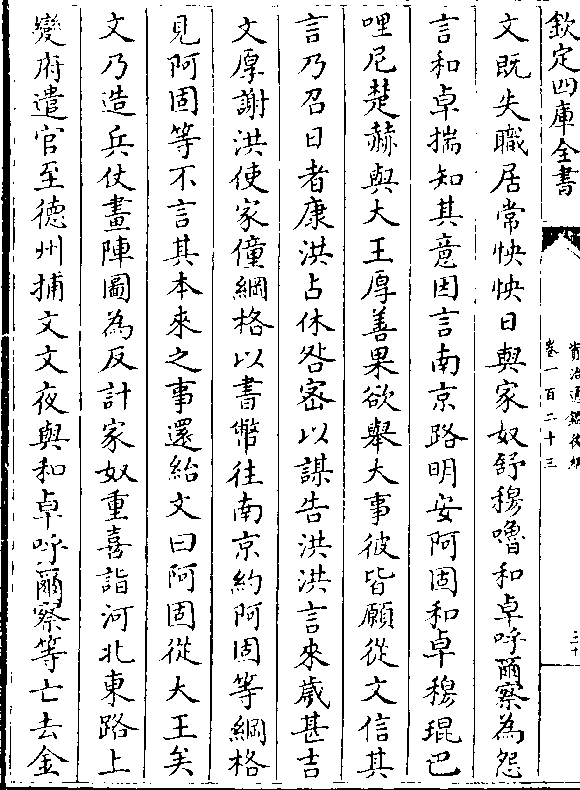 欽定四庫全書
資治通鑑後編
卷一百二十三
三十
文既失職居常怏怏日與家奴舒穆嚕和卓呼爾察為怨
言和卓揣知其意因言南京路明安阿固和卓穆琨巴
哩尼楚赫與大王厚善果欲舉大事彼皆願從文信其
言乃召日者康洪占休咎密以謀告洪洪言來歲甚吉
文厚謝洪使家僮綱格以書幣往南京約阿固等綱格
見阿固等不言其本來之事還紿文曰阿固從大王矣
文乃造兵仗畫陣圖為反計家奴重喜詣河北東路上
變府遣官至德州捕文文夜與和卓呼爾察等亡去金